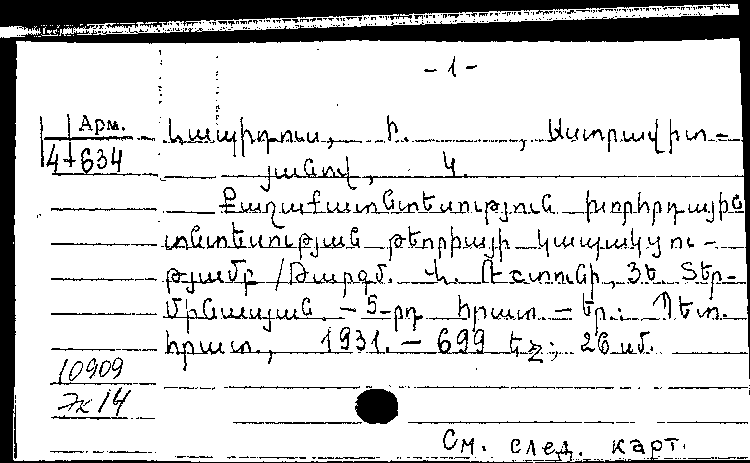 - 1 -
Арм.
4+634
Լապիդուս, Ի. , Աստրովիտ-
յանով, Կ.
Քաղաքատնտեսություն խորհրդային
տնտեսության թեորիայի կապակցու-
թյամբ /Թարգմ. Ն. Րշտունի, Յե. Տեր-
Մինասյան. - 5-րդ հրատ. - Եր.: Պետ.
հրատ., 1931. - 699 եջ; 26 սմ.
10909
Эк 14
См. след. карт.